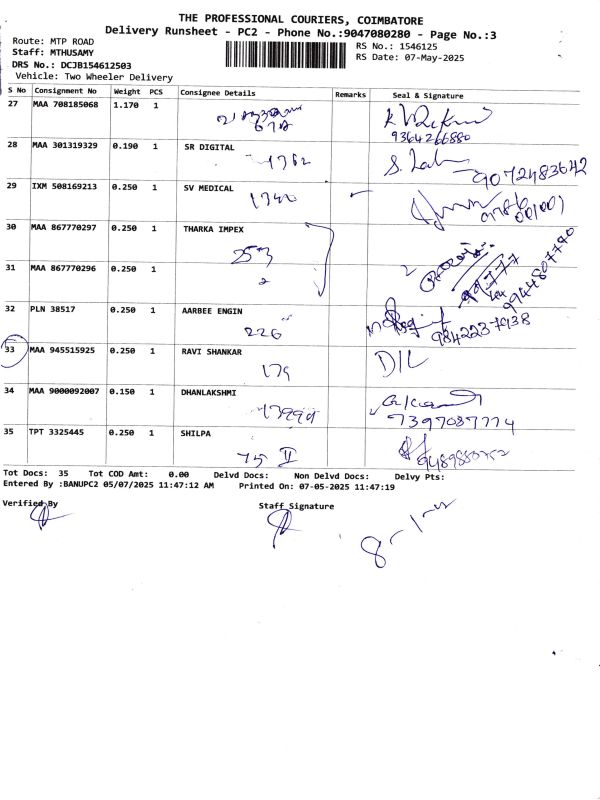 THE PROFESSIONAL COURIERS, COIMBATORE
Delivery Runsheet - PC2 - Phone No.:9047080280 - Page No.:3
Route: MTP ROAD
Staff: MTHUSAMY
DRS No.: DCJB154612503
Vehicle: Two Wheeler Delivery
RS No.: 1546125
RS Date: 07-May-2025
S No Consignment No Weight PCS Consignee Details Remarks Seal & Signature
27 MAA 708185068 1.170 1
9364266880
28 MAA 301319329 0.190 1 SR DIGITAL
1762 9072483642
29 IXM 508169213 0.250 1 SV MEDICAL
1740
30 MAA 867770297 0.250 1 THARKA IMPEX
253
31 MAA 867770296 0.250 1
2 2 9944807790
32 PLN 38517 0.250 1 AARBEE ENGIN
226 9842237938
33 MAA 945515925 0.250 1 RAVI SHANKAR
179 D/L
34 MAA 9000092007 0.150 1 DHANLAKSHMI
7397087774
35 TPT 3325445 0.250 1 SHILPA
75 II
Tot Docs: 35 Tot COD Amt: 0.00 Delvd Docs: Non Delvd Docs: Delvy Pts:
Entered By :BANUPC2 05/07/2025 11:47:12 AM Printed On: 07-05-2025 11:47:19
Verified By Staff Signature